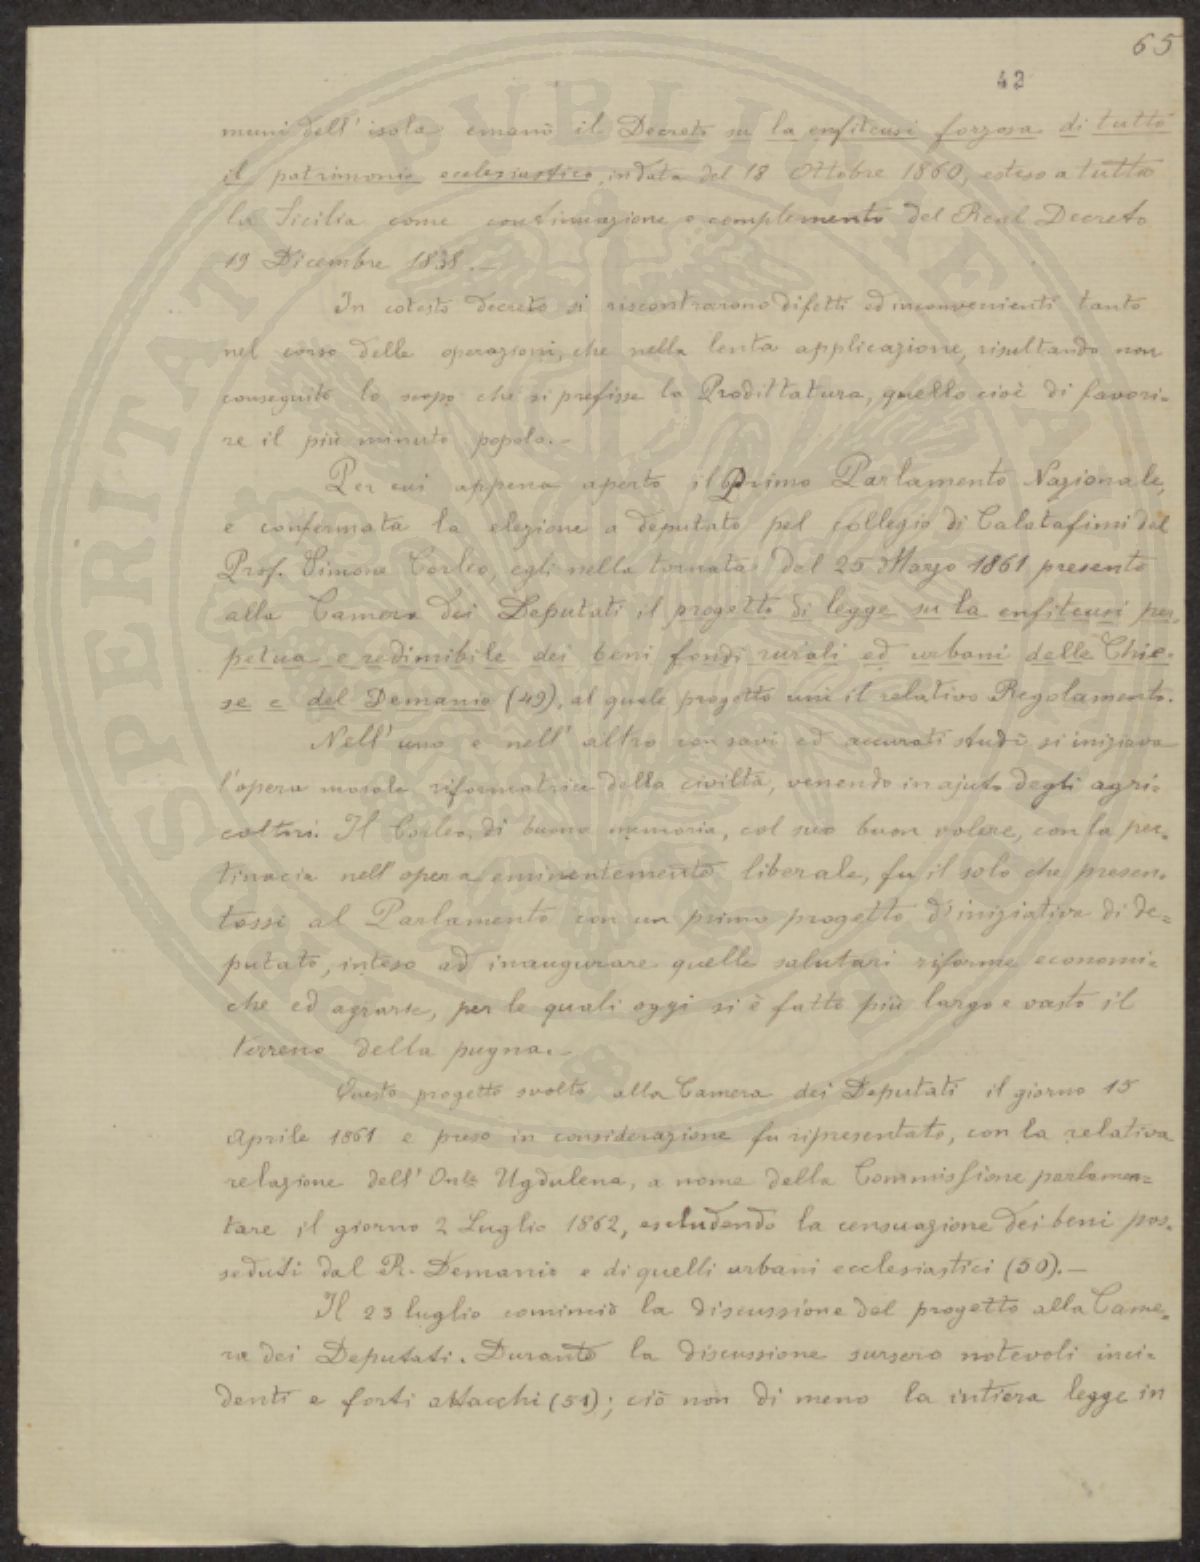 65
42
muni dell' isola emanò il Decreto su la enfiteusi forzosa di tutto
il patrimonio ecclesiastico, in data del 18 Ottobre 1860, esteso a tutta
la Sicilia come continuazione e complemento del Real Decreto
19 Dicembre 1838.—
In cotesto decreto si riscontrarono difetti ed inconvenienti tanto
nel corso delle operazioni, che nella lenta applicazione, risultando non
conseguito lo scopo che si prefisse la Prodittatura, quello cioè di favori-
re il più minuto popolo.—
Per cui appena aperto il Primo Parlamento Nazionale,
e confermata la elezione a deputato pel collegio di Calatafimi del
Prof. Simone Corleo, egli nella tornata del 25 Marzo 1861 presentò
alla Camera dei Deputati il progetto di legge su la enfiteusi per-
petua e redimibile dei beni fondi rurali ed urbani delle Chie-
se e del Demanio (49), al quale progetto unì il relativo Regolamento.
Nell' uno e nell' altro con savi ed accurati studi si iniziava
l'opera morale riformatrice della civiltà, venendo in ajuto degli agri-
coltori. Il Corleo, di buona memoria, col suo buon volere, con la per-
tinacia nell' opera eminentemente liberale, fu il solo che presen-
tossi al Parlamento con un primo progetto d' iniziativa di de=
putato, inteso ad inaugurare quelle salutari riforme economi-
che ed agrarie, per le quali oggi si è fatto più largo e vasto il
terreno della pugna.—
Questo progetto svolto alla Camera dei Deputati il giorno 15
Aprile 1861 e preso in considerazione fu ripresentato, con la relativa
relazione dell' Onle Ugdulena, a nome della Commissione parlamen=
tare il giorno 2 Luglio 1862, escludendo la censuazione dei beni pos-
seduti dal R. Demanio e di quelli urbani ecclesiastici (50).—
Il 23 luglio cominciò la discussione del progetto alla Came-
ra dei Deputati. Durante la discussione sursero notevoli inci-
denti e forti attacchi (51); ciò non di meno la intiera legge in
PROSPERITATI PVBLICAE AVGENDAE